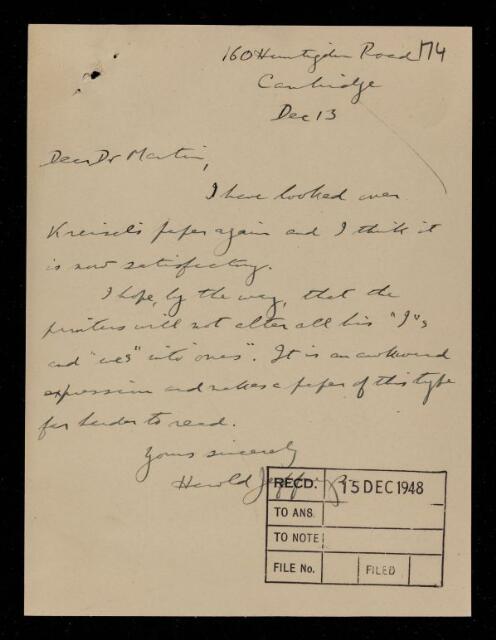 160 Huntingdon Road 174
Cambridge
Dec 13
Dear Dr Martin,
I have looked over
Kreisel's paper again and I think it
is now satisfactory.
I hope, by the way, that the
printers will not alter all his "I"s
and "we"s into "ones". It is an awkward
expression and makes a paper of this type
far harder to read.
Yours sincerely
Harold Jeffreys
RECD: 15 DEC 1948
TO ANS.
TO NOTE
FILE No. FILED